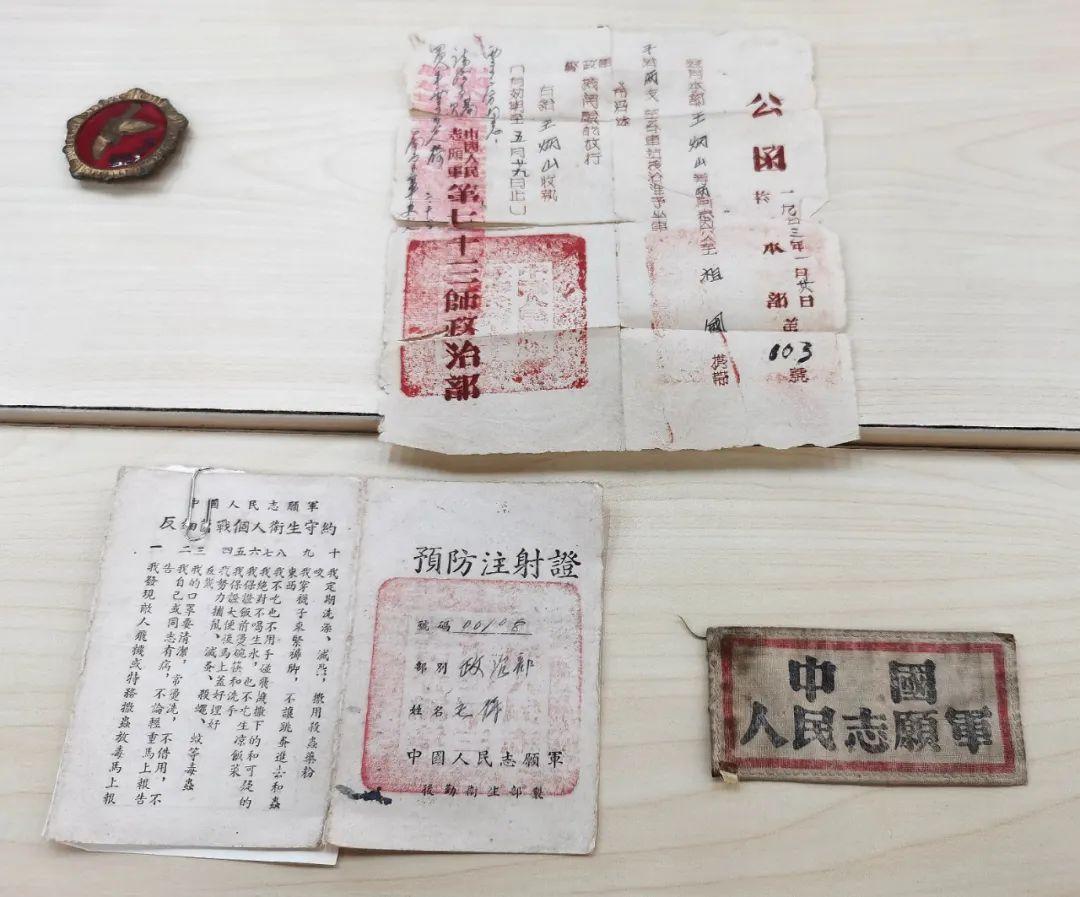 公函
一九五三年一月廿日
於本部
第103號
茲有本部王炳山等
祖國
携帶
希沿途
放行
右給王炳山收執
(有效期至五月廿九日止)
中國人民
志願軍
第七十三師政治部
中國人民志願軍
反細菌戰個人衛生守約
一 我發現敵人飛機或特務撒蟲放毒馬上報
告
二 我自己或同志有病，不論輕重馬上報告
三 我的口罩要清潔，常燙洗，不借用，不
反戴
四 我努力捕鼠、滅蚤、殺蠅、蚊等毒蟲
五 我保證大便後馬上蓋好埋好
六 我保證飯前燙碗筷和洗手
七 我絕對不喝生水，也不吃生凉飯菜
八 我不吃也不用手碰飛機撒下的和可疑的
東西
九 我穿襪子來緊褲脚，不讓跳蚤進去和蟲
咬
十 我定期洗澡、滅虱，撒用殺蟲藥粉
預防注射證
號碼
部別 政治部
姓名
中國人民志願軍
後勤衛生部製
中國
人民志願軍